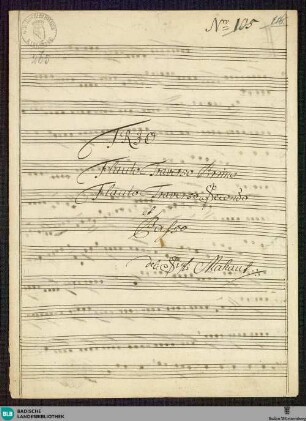 Nro 105
TRIO
Flauto Traverso Primo
Flauto Traverso Secondo
et
Basso
Del Sigr Mahaut
BLB BADISCHE
LANDESBIBLIOTHEK
Baden-Württemberg